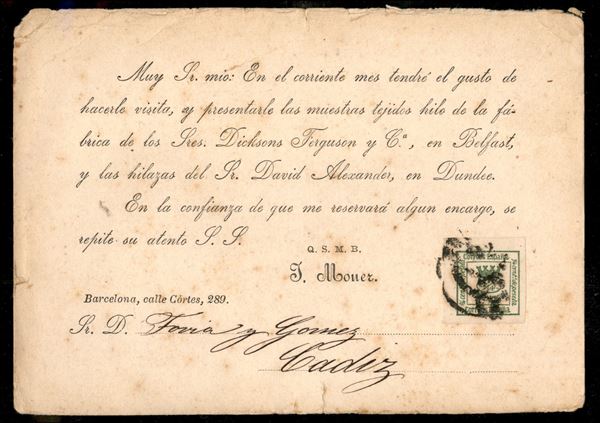 Muy Sr. mio: En el corriente mes tendré el gusto de
hacerle visita, y presentarle las muestras tejidos hilo de la fá-
brica de los Sres. Dicksons Ferguson y C.ª, en Belfast,
y las hilazas del Sr. David Alexander, en Dundee.
En la confianza de que me reservará algun encargo, se
repite su atento S. S.
Q. S. M. B.
J. Mouer.
Barcelona, calle Córtes, 289.
Sr. D. Tovia y Gomez
Cadiz